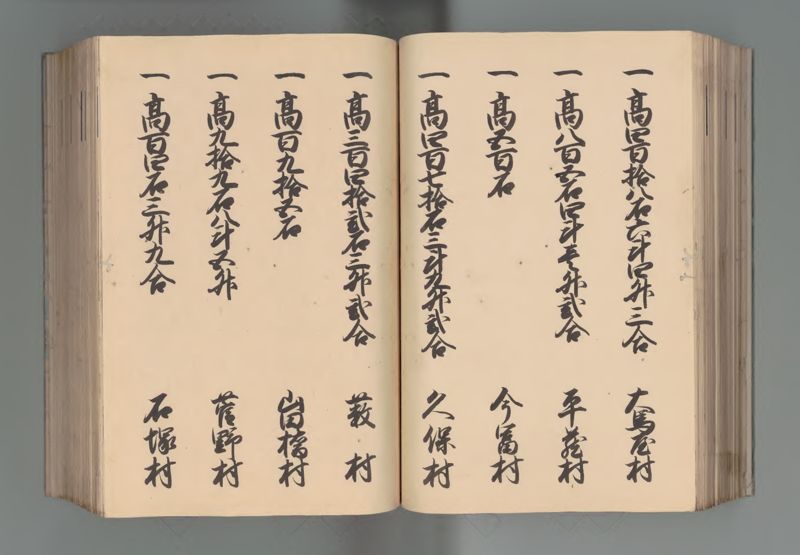 一 高四百拾八石六斗四升三合 大馬屋村
一 高八百五石四斗壱升弐合 平蔵村
一 高五百石 今冨村
一 高四百七拾石三斗九升弐合 久保村
一 高三百四拾弐石三升弐合 薮村
一 高百九拾五石 山田橋村
一 高九拾九石八斗五升 菅野村
一 高百四石三升九合 石塚村